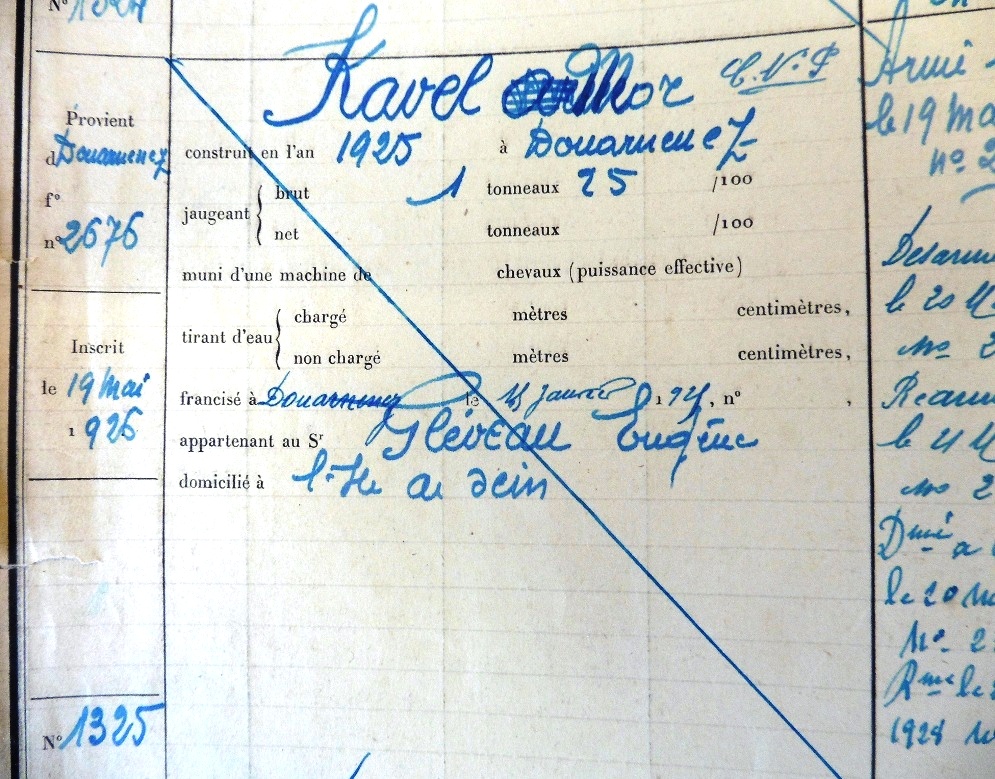 Kavel Mor C.N.P
Provient
d Douarnenez
fº
nº 2676
construit en l'an 1925 à Douarnenez
jaugeant brut 1 tonneaux 25 /100
net tonneaux /100
muni d'une machine de chevaux (puissance effective)
tirant d'eau chargé mètres centimètres,
non chargé mètres centimètres,
Inscrit
le 19 Mai
1926
francisé à Douarnenez le Janvier 192, nº ,
appartenant au Sr Gléveau Eugène
domicilié à l'Ile de Sein
Nº 1325
Armé
le 19 Ma
nº 2
Désarm
le 20 M
nº 2
Réarm
le 11 M
nº 2
Dmé a
le 20 M
Nº 2
Rmé le
1928